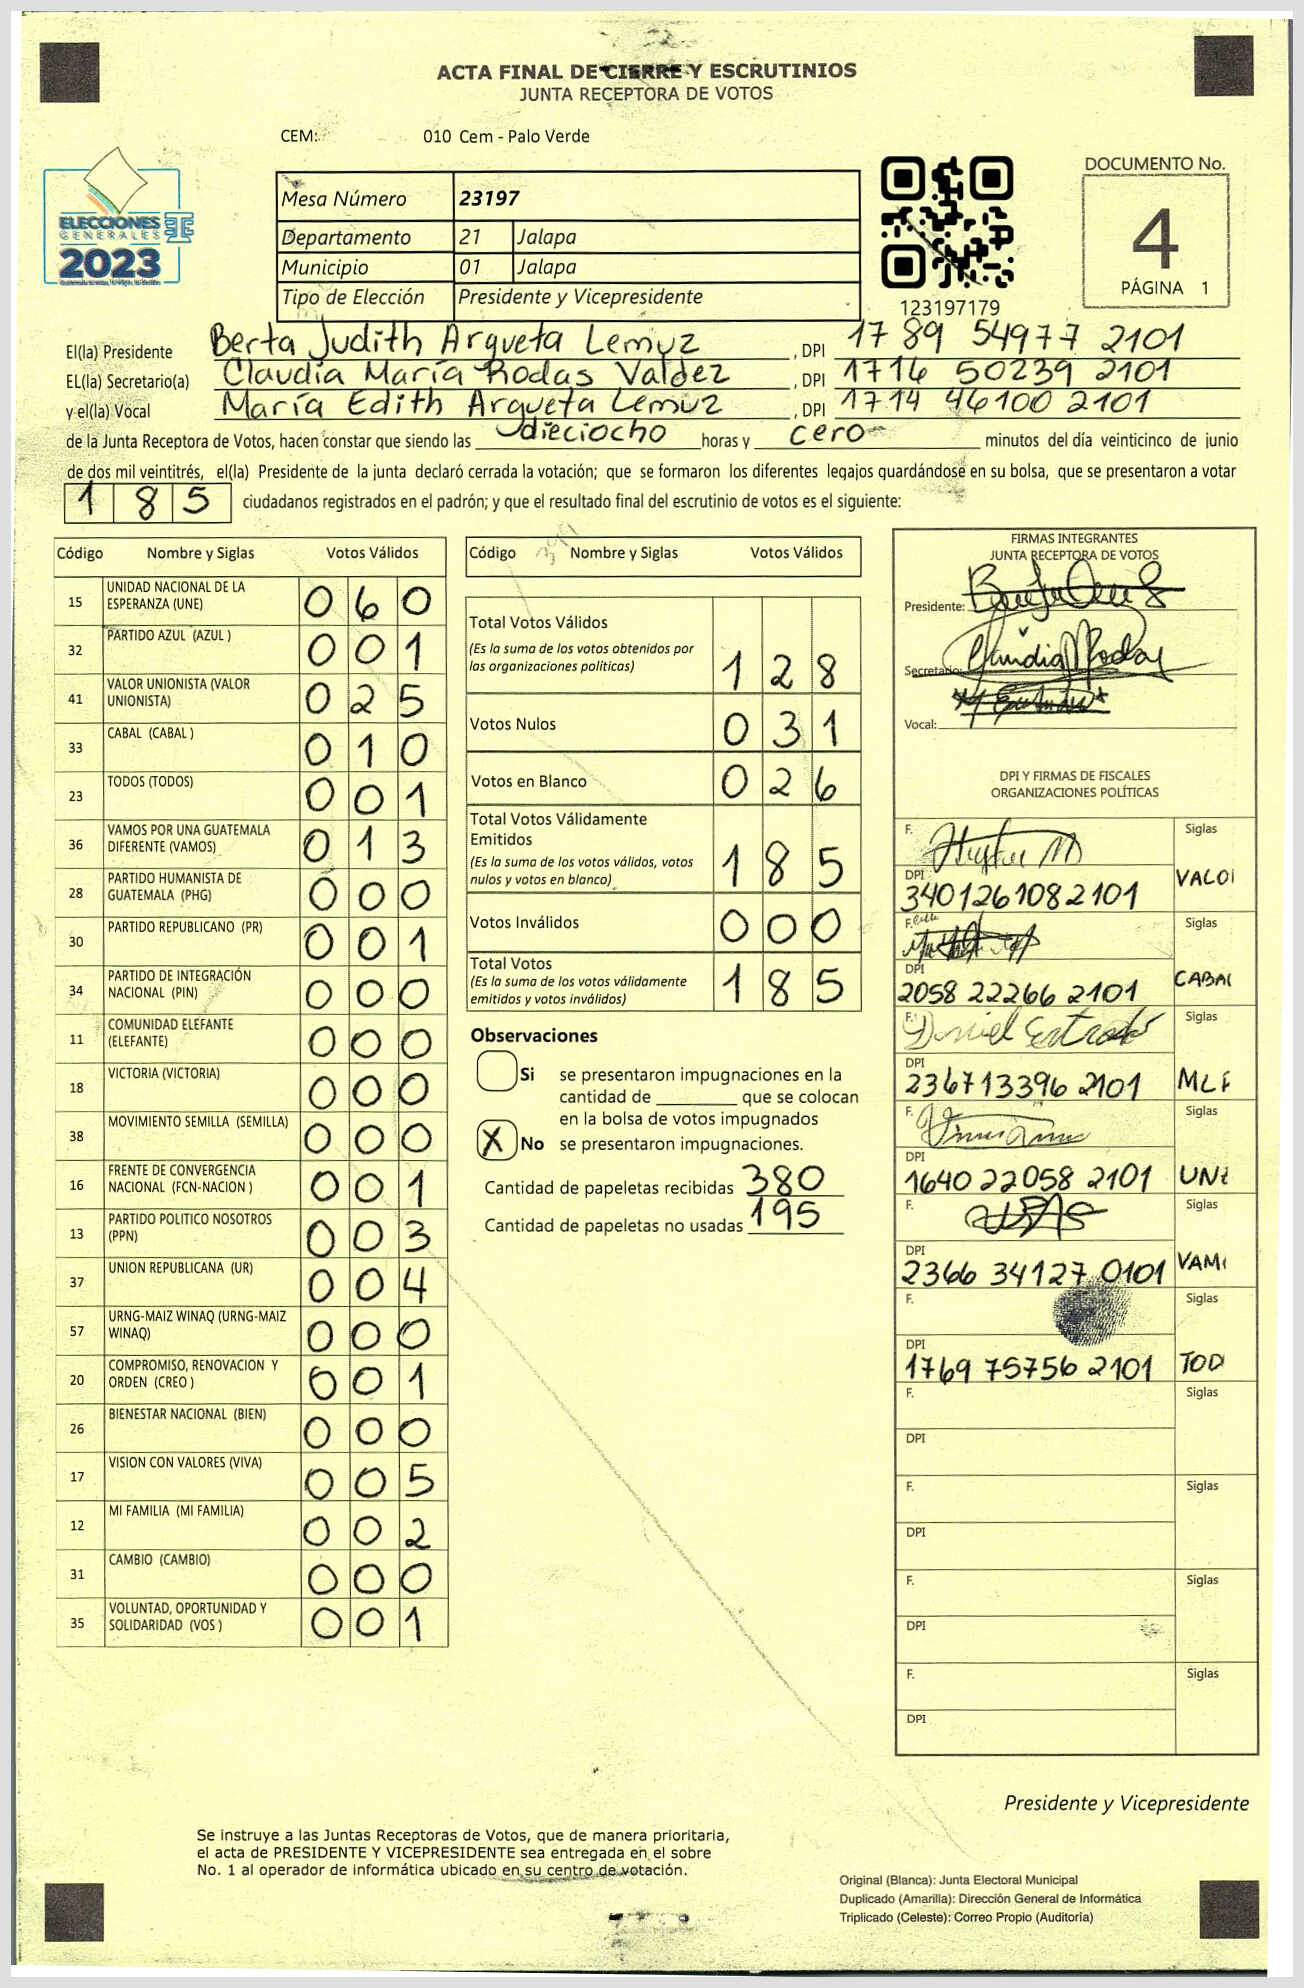 ACTA FINAL DE CIERRE Y ESCRUTINIOS
JUNTA RECEPTORA DE VOTOS
CEM: 010 Cem - Palo Verde
ELECCIONES
GENERALES
2023
Mesa Número 23197
Departamento 21 Jalapa
Municipio 01 Jalapa
Tipo de Elección Presidente y Vicepresidente
123197179
DOCUMENTO No.
4
PÁGINA 1
El(la) Presidente Berta Judith Argueta Lemuz, DPI 1789 54977 2101
EL(la) Secretario(a) Claudia María Rodas Valdez, DPI 1716 50239 2101
y el(la) Vocal María Edith Argueta Lemuz, DPI 1714 46100 2101
de la Junta Receptora de Votos, hacen constar que siendo las dieciocho horas y cero minutos del día veinticinco de junio
de dos mil veintitrés, el(la) Presidente de la junta declaró cerrada la votación; que se formaron los diferentes legajos guardándose en su bolsa, que se presentaron a votar
185 ciudadanos registrados en el padrón; y que el resultado final del escrutinio de votos es el siguiente:
Código Nombre y Siglas Votos Válidos
15 UNIDAD NACIONAL DE LA ESPERANZA (UNE) 060
32 PARTIDO AZUL (AZUL ) 001
41 VALOR UNIONISTA (VALOR UNIONISTA) 025
33 CABAL (CABAL ) 010
23 TODOS (TODOS) 001
36 VAMOS POR UNA GUATEMALA DIFERENTE (VAMOS) 013
28 PARTIDO HUMANISTA DE GUATEMALA (PHG) 000
30 PARTIDO REPUBLICANO (PR) 001
34 PARTIDO DE INTEGRACIÓN NACIONAL (PIN) 000
11 COMUNIDAD ELEFANTE (ELEFANTE) 000
18 VICTORIA (VICTORIA) 000
38 MOVIMIENTO SEMILLA (SEMILLA) 000
16 FRENTE DE CONVERGENCIA NACIONAL (FCN-NACION ) 001
13 PARTIDO POLITICO NOSOTROS (PPN) 003
37 UNION REPUBLICANA (UR) 004
57 URNG-MAIZ WINAQ (URNG-MAIZ WINAQ) 000
20 COMPROMISO, RENOVACION Y ORDEN (CREO ) 001
26 BIENESTAR NACIONAL (BIEN) 000
17 VISION CON VALORES (VIVA) 005
12 MI FAMILIA (MI FAMILIA) 002
31 CAMBIO (CAMBIO) 000
35 VOLUNTAD, OPORTUNIDAD Y SOLIDARIDAD (VOS ) 001
Código Nombre y Siglas Votos Válidos
Total Votos Válidos
(Es la suma de los votos obtenidos por
las organizaciones políticas) 128
Votos Nulos 031
Votos en Blanco 026
Total Votos Válidamente
Emitidos
(Es la suma de los votos válidos, votos
nulos y votos en blanco) 185
Votos Inválidos 000
Total Votos
(Es la suma de los votos válidamente
emitidos y votos inválidos) 185
Observaciones
Si se presentaron impugnaciones en la
cantidad de ________ que se colocan
en la bolsa de votos impugnados
X No se presentaron impugnaciones.
Cantidad de papeletas recibidas 380
Cantidad de papeletas no usadas 195
FIRMAS INTEGRANTES
JUNTA RECEPTORA DE VOTOS
Presidente:
Secretario:
Vocal:
DPI Y FIRMAS DE FISCALES
ORGANIZACIONES POLÍTICAS
F. Siglas
DPI 340126108 2101 VALOR
F. Siglas
DPI 2058 22266 2101 CABAL
F. Daniel Estrada Siglas
DPI 236713396 2101 MLP
F. Siglas
DPI 1640 22058 2101 UNE
F. Siglas
DPI 2366 34127 0101 VAM
F. Siglas
DPI 1769 75756 2101 TOD
F. Siglas
DPI
F. Siglas
DPI
F. Siglas
DPI
F. Siglas
DPI
Presidente y Vicepresidente
Se instruye a las Juntas Receptoras de Votos, que de manera prioritaria,
el acta de PRESIDENTE Y VICEPRESIDENTE sea entregada en el sobre
No. 1 al operador de informática ubicado en su centro de votación.
Original (Blanca): Junta Electoral Municipal
Duplicado (Amarilla): Dirección General de Informática
Triplicado (Celeste): Correo Propio (Auditoría)